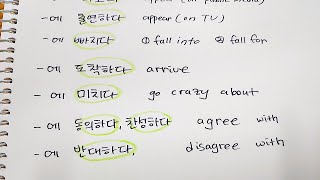 appear (on
-에 출연하다 appear (on TV)
-에 빠지다 ① fall into ② fall for
-에 도착하다 arrive
-에 미치다 go crazy about
-에 동의하다, 찬성하다 agree with
-에 반대하다, disagree with